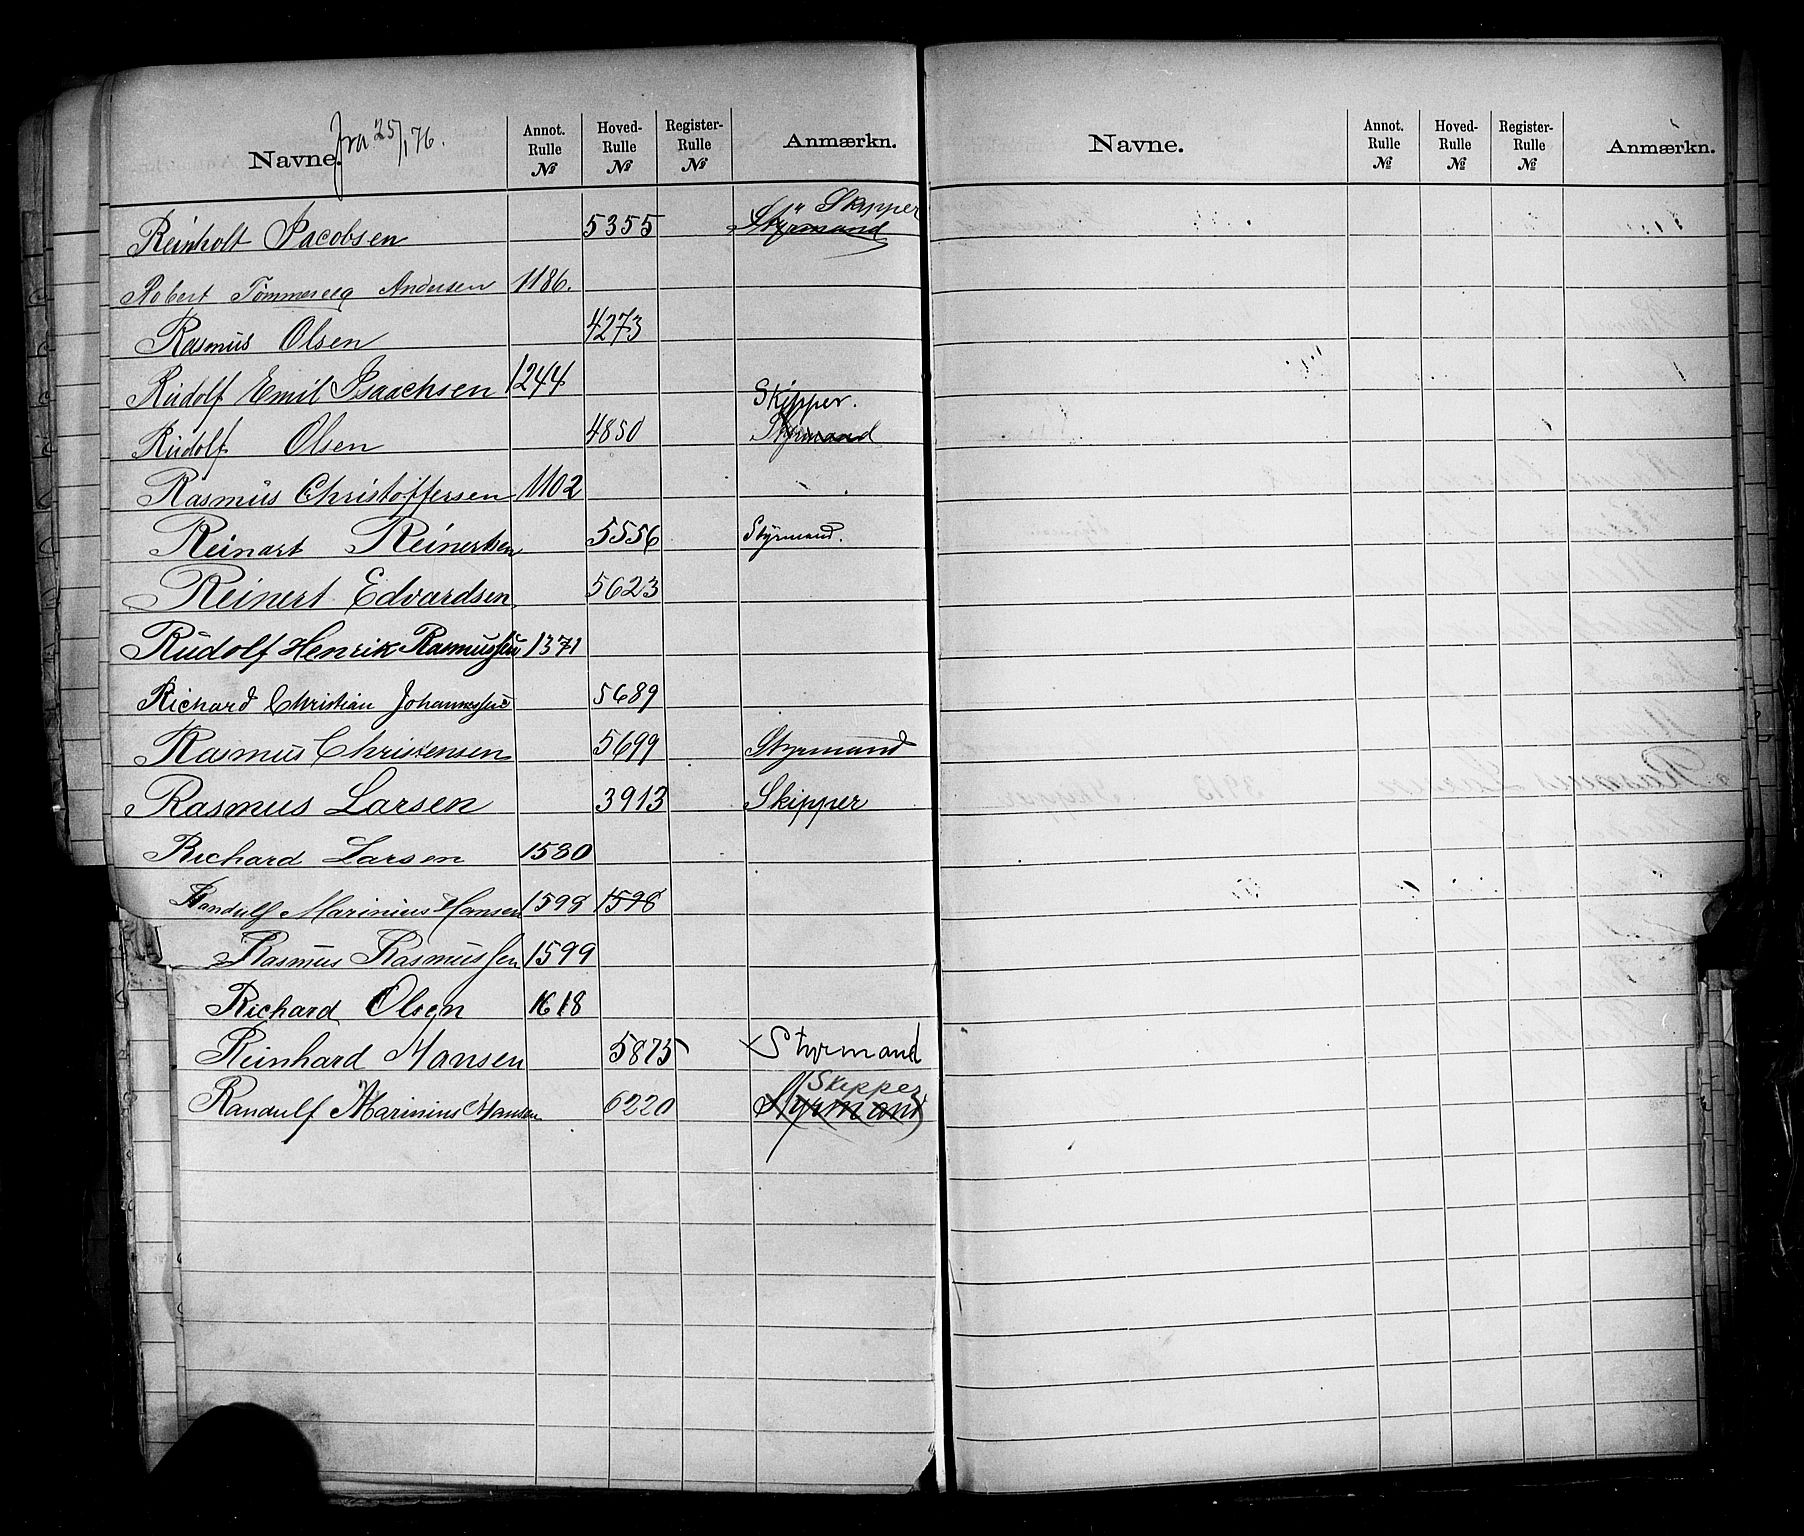 Navne. fra 25/1 76. Annot. Rulle № Hoved- Rulle № Register- Rulle № Anmærkn.
Reinholt Jacobsen 5355 Styrmand Skipper
Robert Andersen 1186.
Rasmus Olsen 4273
Rudolf Emil Isaachsen 1244
Skipper.
Rudolf Olsen 4850 Styrmand
Rasmus Christoffersen 1102
Reinart Reinertsen 5556 Styrmand.
Reinert Edvardsen 5623
Rudolf Henrik Rasmussen 1371
Richard Christian Johannessen 5689
Rasmus Christensen 5699 Styrmand
Rasmus Larsen 3913 Skipper
Richard Larsen 1580
Randulf Marinius Hansen 1598 1598
Rasmus Rasmussen 1599
Richard Olsen 1618
Reinhard Hansen 5875 Styrmand
Skipper
Randulf Marinius Hansen 6220 Styrmand
Navne. Annot. Rulle № Hoved- Rulle № Register- Rulle № Anmærkn.